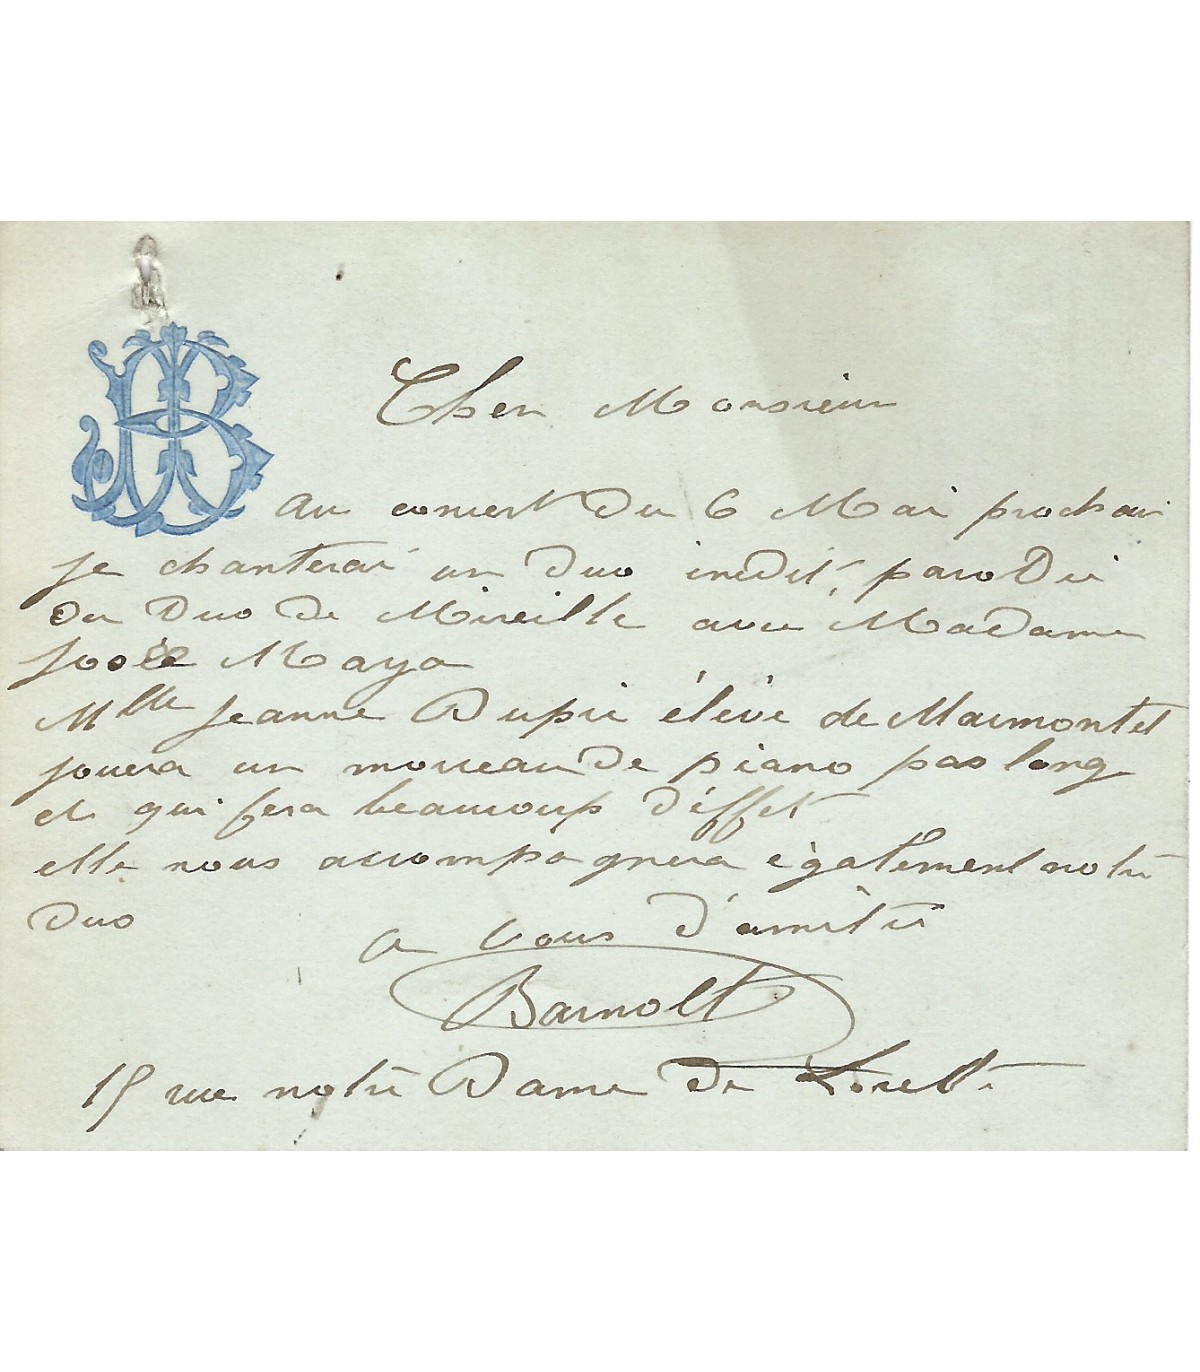 Cher Monsieur
au concert du 6 Mai prochain
je chanterai un duo inédit, parodie
du duo de Mireille avec Madame
Maya
Mlle Jeanne Dupié élève de Marmontel
jouera un morceau de piano pas long
et qui fera beaucoup d'éffet
elle nous accompagnera également notre
duo
a vous d'amitié
Barnolt
15 rue notre Dame de Lorette